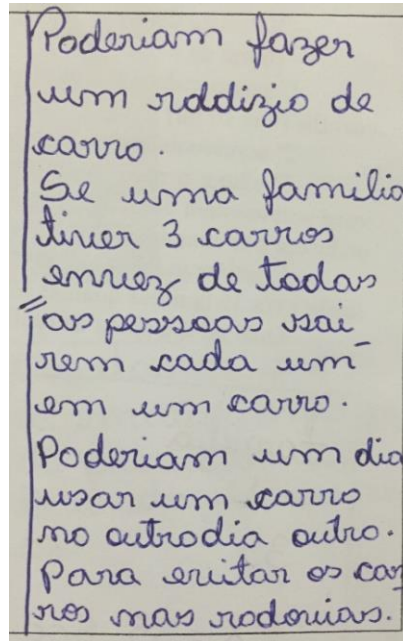 Poderiam fazer
um roddizio de
carro.
Se uma familia
tiver 3 carros
enviez de todas
as pessoas sai-
rem cada um
em um carro.
Poderiam um dia
usar um carro
no outrodia outro.
Para evitar os car
ros nas rodovias.